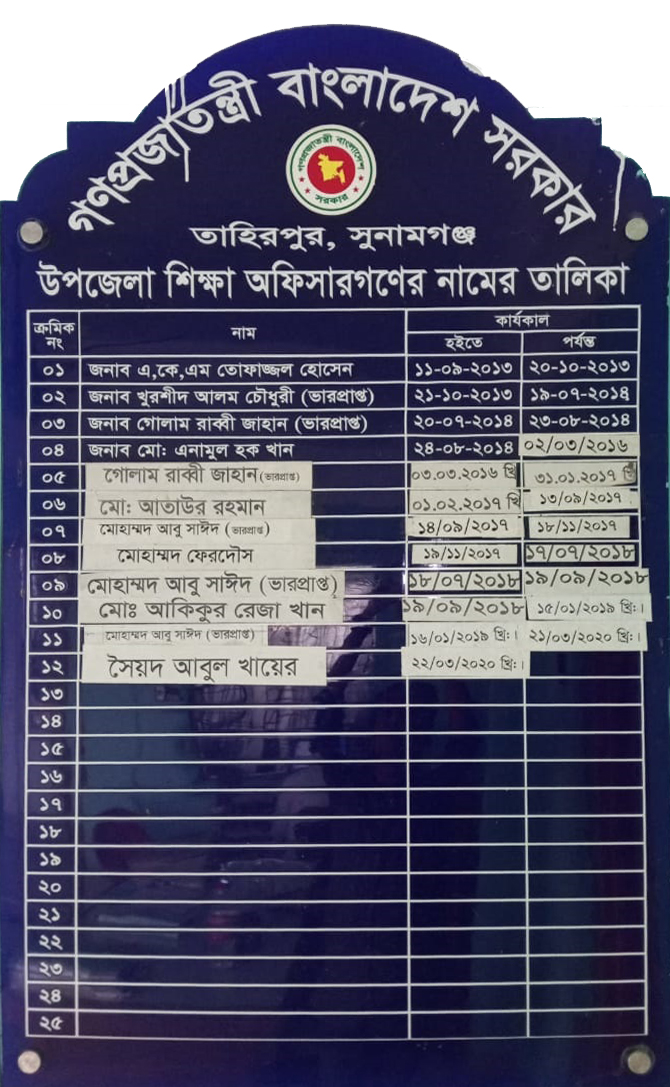 গণপ্রজাতন্ত্রী বাংলাদেশ সরকার
গণপ্রজাতন্ত্রী বাংলাদেশ
সরকার
তাহিরপুর, সুনামগঞ্জ
উপজেলা শিক্ষা অফিসারগণের নামের তালিকা
ক্রমিক নং নাম কার্যকাল
হইতে পর্যন্ত
০১ জনাব এ,কে,এম তোফাজ্জল হোসেন ১১-০৯-২০১৩ ২০-১০-২০১৩
০২ জনাব খুরশীদ আলম চৌধুরী (ভারপ্রাপ্ত) ২১-১০-২০১৩ ১৯-০৭-২০১৪
০৩ জনাব গোলাম রাব্বী জাহান (ভারপ্রাপ্ত) ২০-০৭-২০১৪ ২৩-০৮-২০১৪
০৪ জনাব মো: এনামুল হক খান ২৪-০৮-২০১৪ ০২/০৩/২০১৬
০৫ গোলাম রাব্বী জাহান (ভারপ্রাপ্ত) ০৩.০৩.২০১৬ খ্রি ৩১.০১.২০১৭ খ্রি
০৬ মো: আতাউর রহমান ০১.০২.২০১৭ খ্রি ১৩/০৯/২০১৭
০৭ মোহাম্মদ আবু সাঈদ (ভারপ্রাপ্ত) ১৪/০৯/২০১৭ ১৮/১১/২০১৭
০৮ মোহাম্মদ ফেরদৌস ১৯/১১/২০১৭ ১৭/০৭/২০১৮
০৯ মোহাম্মদ আবু সাঈদ (ভারপ্রাপ্ত) ১৮/০৭/২০১৮ ১৯/০৯/২০১৮
১০ মোঃ আকিকুর রেজা খান ১৯/০৯/২০১৮ ১৫/০১/২০১৯ খ্রিঃ।
১১ মোহাম্মদ আবু সাঈদ (ভারপ্রাপ্ত) ১৬/০১/২০১৯ খ্রিঃ। ২১/০৩/২০২০ খ্রিঃ।
১২ সৈয়দ আবুল খায়ের ২২/০৩/২০২০ খ্রিঃ।
১৩
১৪
১৫
১৬
১৭
১৮
১৯
২০
২১
২২
২৩
২৪
২৫